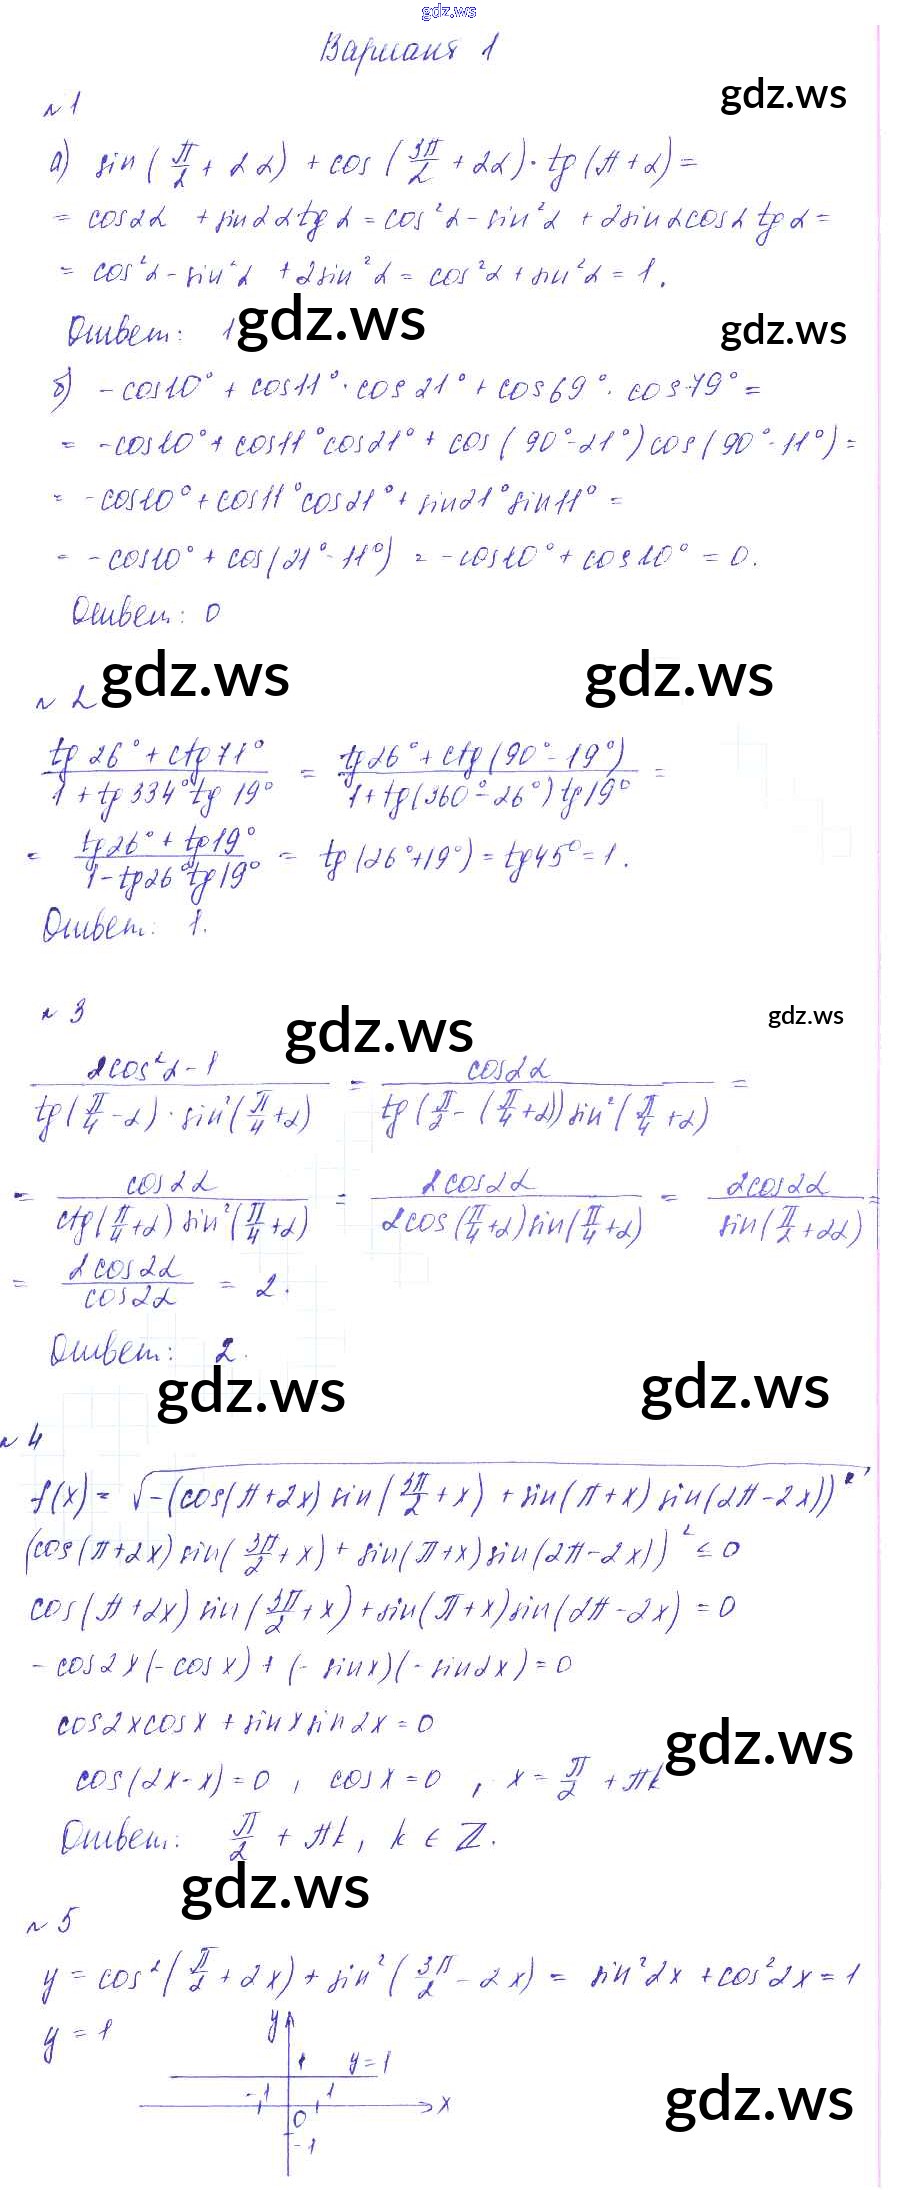 gdz.ws
Вариант 1
gdz.ws
№ 1
а) sin (π/2 + 2α) + cos (3π/2 + 2α) · tg (π + α) =
= cos2α + sin2α tg α = cos²α - sin²α + 2sinα cosα tg α =
= cos²α - sin²α + 2sin²α = cos²α + sin²α = 1.
Ответ: 1
gdz.ws gdz.ws
б) - cos10° + cos11° · cos 21° + cos69° · cos79° =
= - cos10° + cos11° cos21° + cos (90° - 21°) cos (90° - 11°) =
= - cos10° + cos11° cos21° + sin21° sin11° =
= - cos10° + cos(21° - 11°) = - cos10° + cos10° = 0.
Ответ: 0
gdz.ws gdz.ws
№ 2
(tg 26° + ctg 71°)/(1 + tg 334° tg 19°) = (tg26° + ctg (90° - 19°))/(1 + tg(360° - 26°) tg19°) =
= (tg26° + tg19°)/(1 - tg26° tg19°) = tg (26° + 19°) = tg45° = 1.
Ответ: 1.
№ 3
gdz.ws gdz.ws
(2cos²α - 1)/(tg(π/4 - α) · sin²(π/4 + α)) = cos2α/(tg (π/2 - (π/4 + α)) sin²(π/4 + α)) =
= cos2α/(ctg(π/4 + α) sin²(π/4 + α)) = 2cos2α/(2cos(π/4 + α) sin(π/4 + α)) = 2cos2α/sin(π/2 + 2α) =
= 2cos2α/cos2α = 2.
Ответ: 2.
gdz.ws gdz.ws
№ 4
f(x) = √(-(cos(π + 2x) sin(3π/2 + x) + sin(π + x) sin(2π - 2x))²)
(cos(π + 2x) sin(3π/2 + x) + sin(π + x) sin(2π - 2x))² ≤ 0
cos(π + 2x) sin(3π/2 + x) + sin(π + x) sin(2π - 2x) = 0
- cos2x (- cosx) + (- sinx)(- sin2x) = 0
cos2x cosx + sinx sin2x = 0
gdz.ws
cos(2x - x) = 0 , cosx = 0 , x = π/2 + πk
Ответ: π/2 + πk, k ∈ Z.
gdz.ws
№ 5
y = cos²(π/2 + 2x) + sin²(3π/2 - 2x) = sin²2x + cos²2x = 1
y = 1
y
1 y = 1
-1 1
x
0
-1
gdz.ws